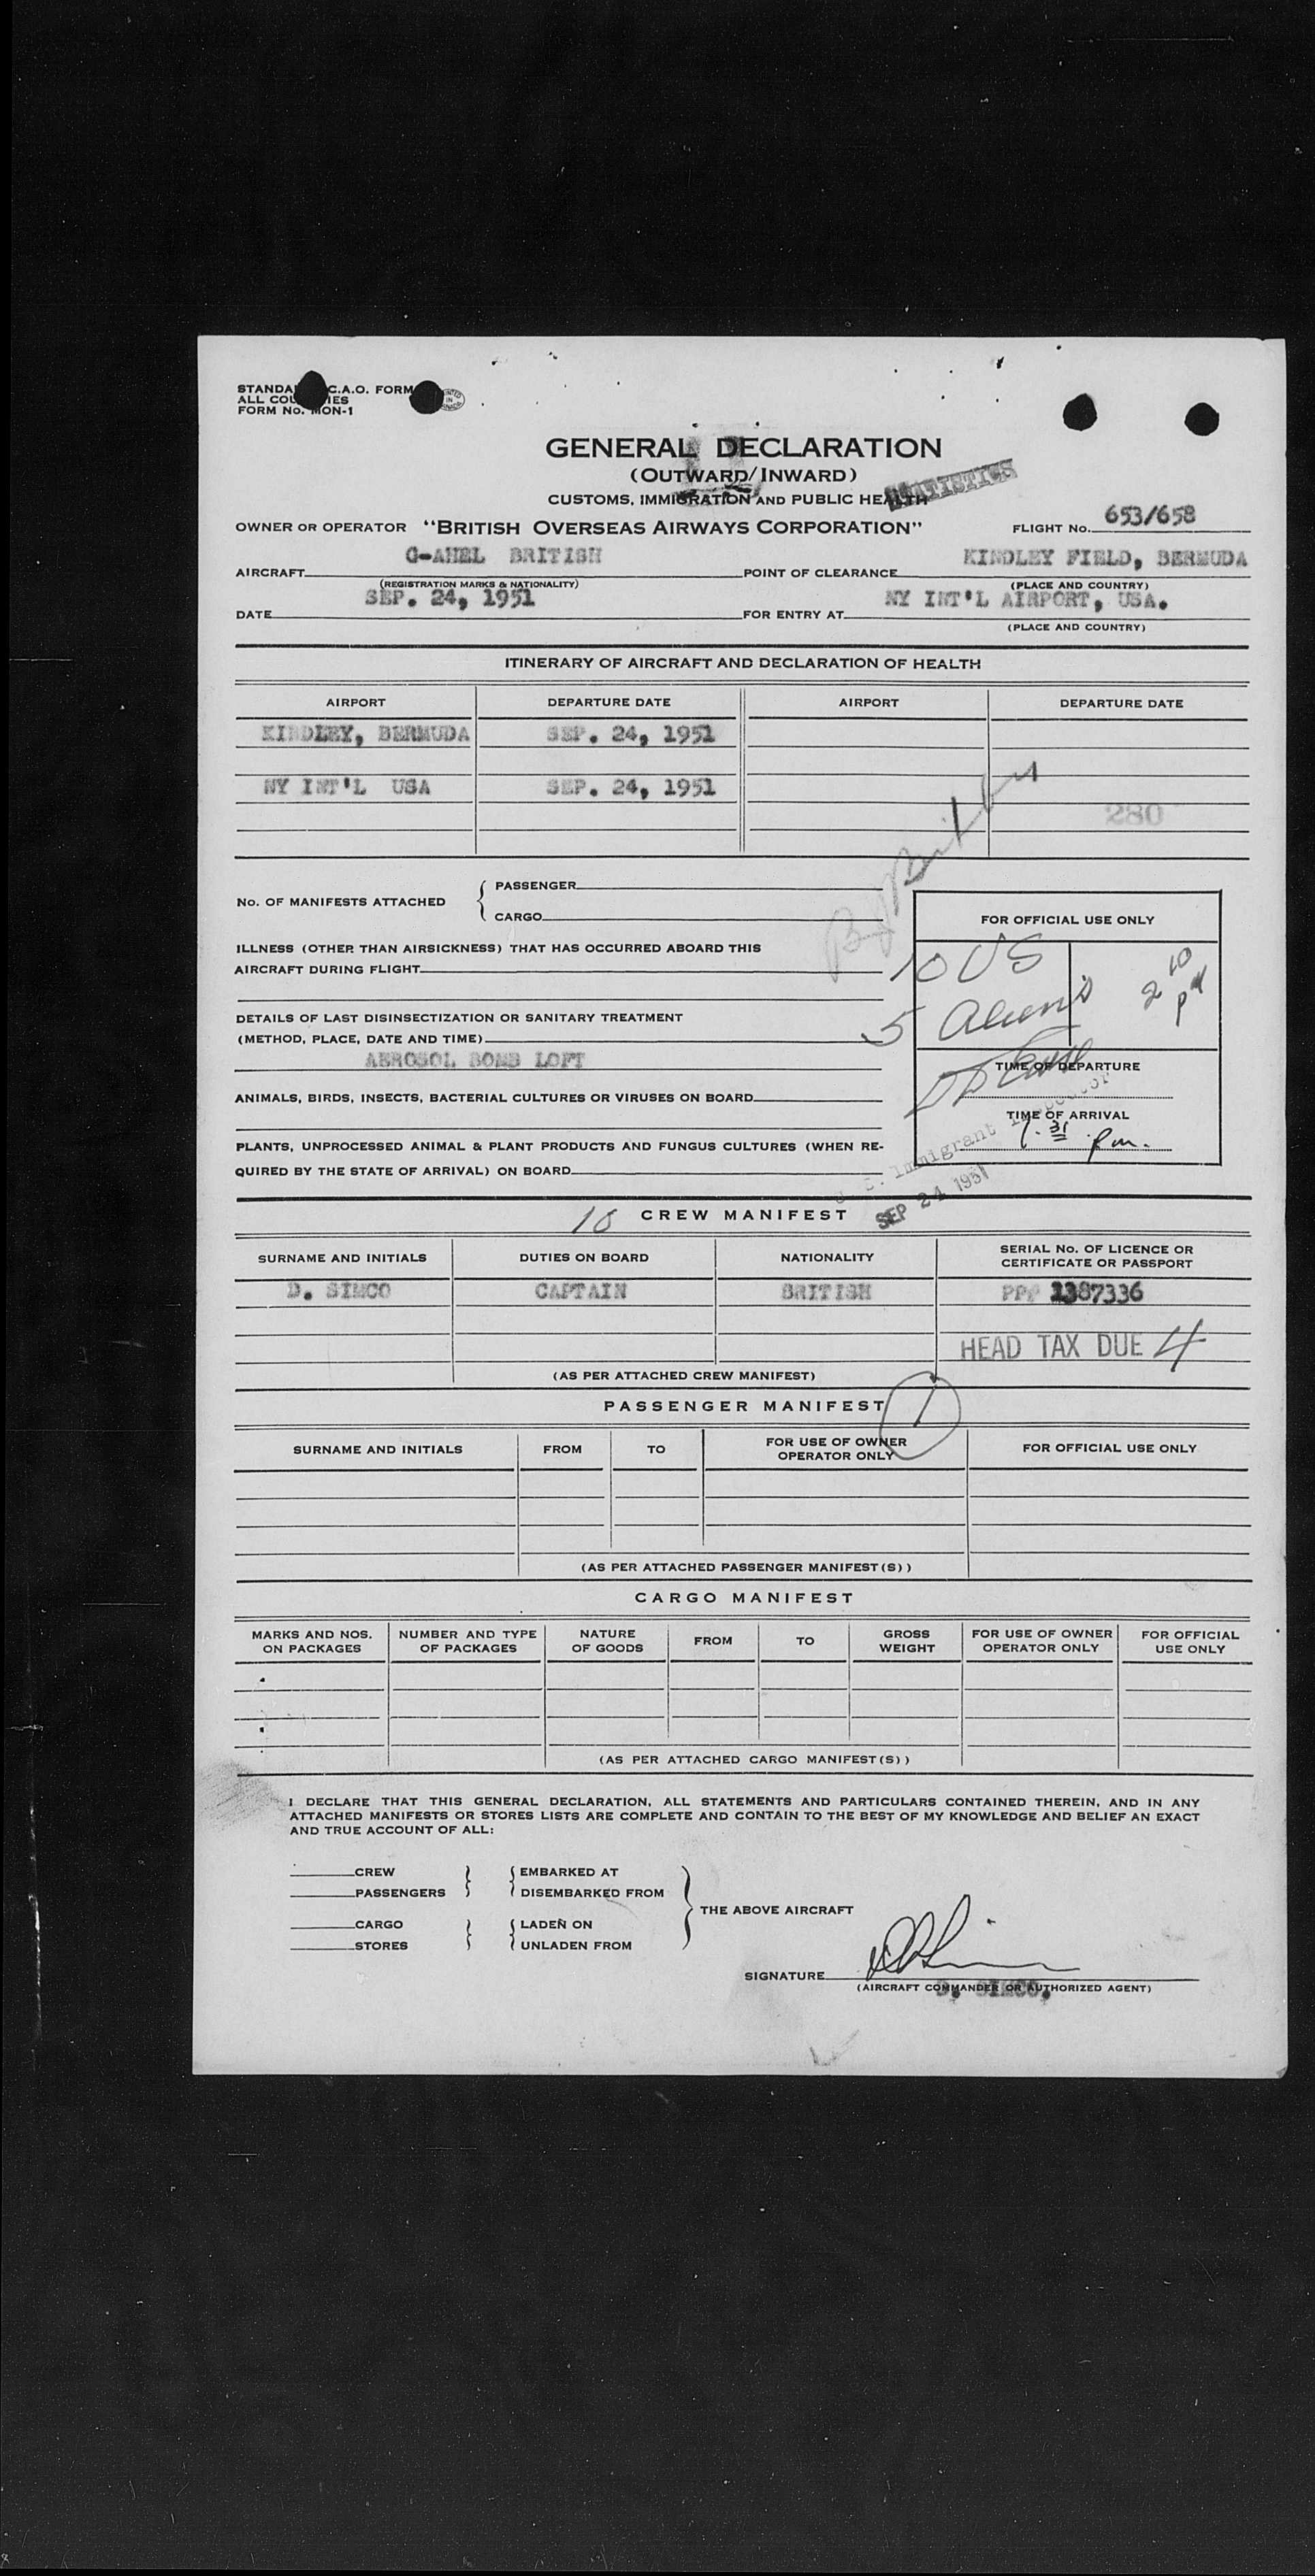 STANDA C.A.O. FORM
ALL COU IES
FORM No. MON-1
GENERAL DECLARATION
(OUTWARD/INWARD)
CUSTOMS, IMMIGRATION AND PUBLIC HEALTH
STATISTICS
OWNER OR OPERATOR "BRITISH OVERSEAS AIRWAYS CORPORATION" FLIGHT No. 653/658
AIRCRAFT G-AHEL BRITISH POINT OF CLEARANCE KINDLEY FIELD, BERMUDA
(REGISTRATION MARKS & NATIONALITY) (PLACE AND COUNTRY)
DATE SEP. 24, 1951 FOR ENTRY AT NY INT'L AIRPORT, USA.
(PLACE AND COUNTRY)
ITINERARY OF AIRCRAFT AND DECLARATION OF HEALTH
AIRPORT DEPARTURE DATE AIRPORT DEPARTURE DATE
KINDLEY, BERMUDA SEP. 24, 1951
NY INT'L USA SEP. 24, 1951
280
No. OF MANIFESTS ATTACHED { PASSENGER
CARGO
FOR OFFICIAL USE ONLY
ILLNESS (OTHER THAN AIRSICKNESS) THAT HAS OCCURRED ABOARD THIS
AIRCRAFT DURING FLIGHT
10 US
5 Aliens
2 10 PM
DETAILS OF LAST DISINSECTIZATION OR SANITARY TREATMENT
(METHOD, PLACE, DATE AND TIME)
AEROSOL BOMB LOFT
TIME OF DEPARTURE
ANIMALS, BIRDS, INSECTS, BACTERIAL CULTURES OR VIRUSES ON BOARD
TIME OF ARRIVAL
1.31 P.m.
PLANTS, UNPROCESSED ANIMAL & PLANT PRODUCTS AND FUNGUS CULTURES (WHEN RE-
QUIRED BY THE STATE OF ARRIVAL) ON BOARD
S. Immigrant Inspector
SEP 24 1951
10 CREW MANIFEST
SURNAME AND INITIALS DUTIES ON BOARD NATIONALITY SERIAL No. OF LICENCE OR
CERTIFICATE OR PASSPORT
D. SIMCO CAPTAIN BRITISH PPP 1387336
HEAD TAX DUE 4
(AS PER ATTACHED CREW MANIFEST)
PASSENGER MANIFEST 1
SURNAME AND INITIALS FROM TO FOR USE OF OWNER
OPERATOR ONLY FOR OFFICIAL USE ONLY
(AS PER ATTACHED PASSENGER MANIFEST(S))
CARGO MANIFEST
MARKS AND NOS. NUMBER AND TYPE NATURE FROM TO GROSS FOR USE OF OWNER FOR OFFICIAL
ON PACKAGES OF PACKAGES OF GOODS WEIGHT OPERATOR ONLY USE ONLY
(AS PER ATTACHED CARGO MANIFEST(S))
I DECLARE THAT THIS GENERAL DECLARATION, ALL STATEMENTS AND PARTICULARS CONTAINED THEREIN, AND IN ANY
ATTACHED MANIFESTS OR STORES LISTS ARE COMPLETE AND CONTAIN TO THE BEST OF MY KNOWLEDGE AND BELIEF AN EXACT
AND TRUE ACCOUNT OF ALL:
CREW EMBARKED AT
PASSENGERS DISEMBARKED FROM
THE ABOVE AIRCRAFT
CARGO LADEN ON
STORES UNLADEN FROM
SIGNATURE
(AIRCRAFT COMMANDER OR AUTHORIZED AGENT)
D. SIMCO,